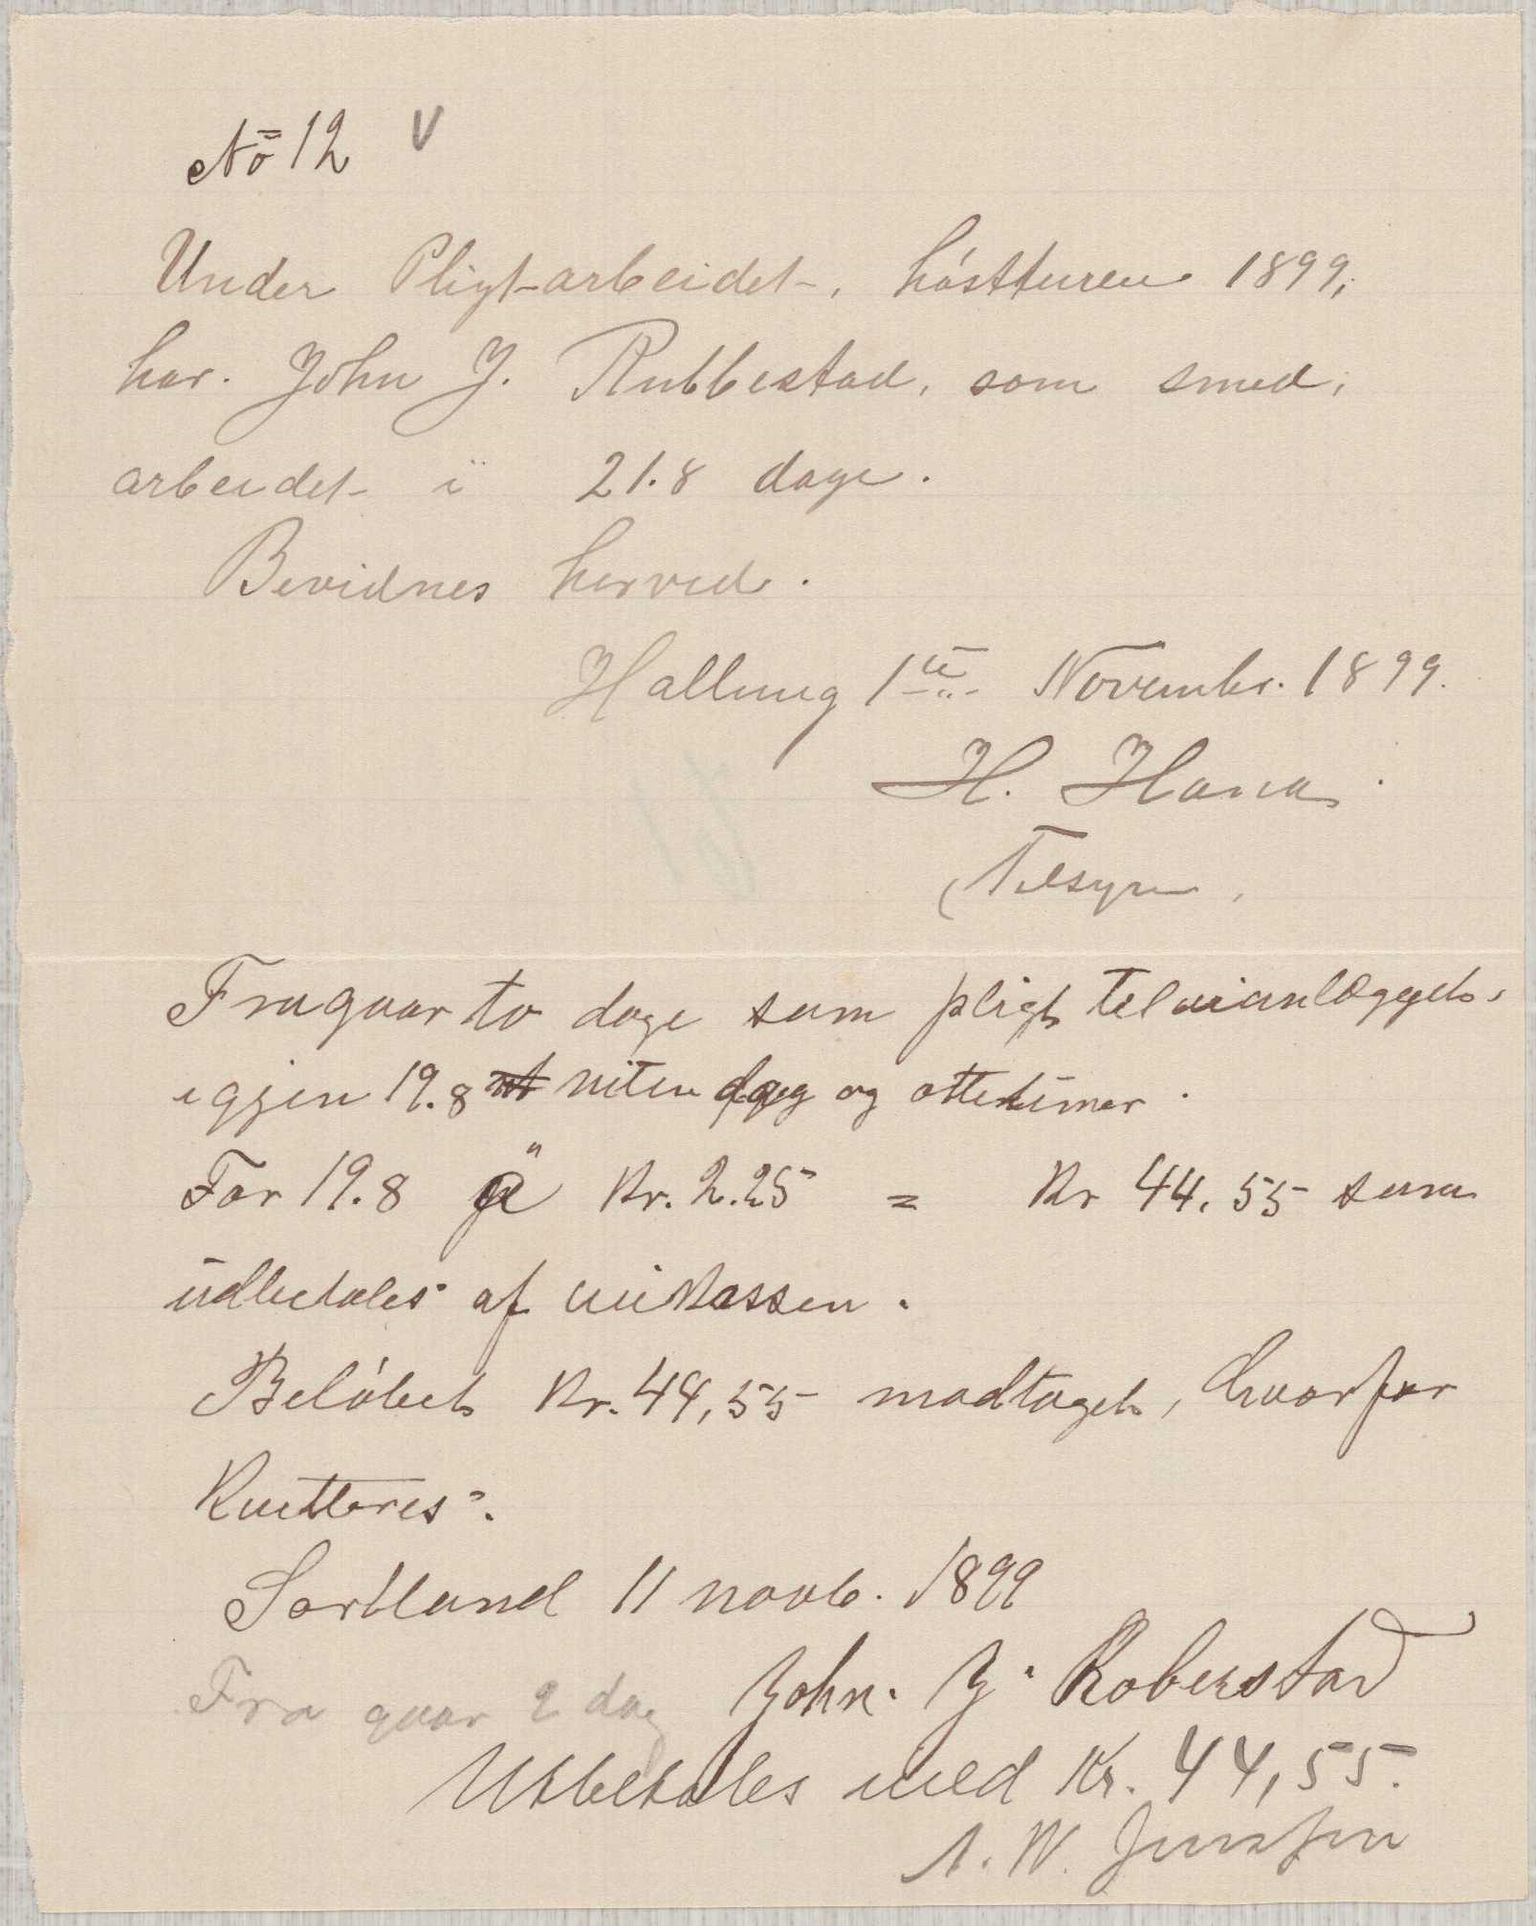 No 12 V
Under Pligtarbeidet, høstturen 1899,
har. John J. Rubbestad, som smed,
arbeidet i 21.8 dage.
Bevidnes herved.
1ste Novembr. 1899.
H. Hana
Tilsyn,
Fragaar to dage som pligt til veianlæggets
igjen 19.8 niten dag og ottetimer.
For 19.8 a Kr. 2.25 = Kr 44,55 som
udbetales af veikassen.
Beløbet Kr. 44,55 modtaget, hvorfor
Kvitteres.
Sortland 11 novb. 1899
Fra gaar 2 dag John. J. Roberstad
Utbetales med Kr. 44,55.